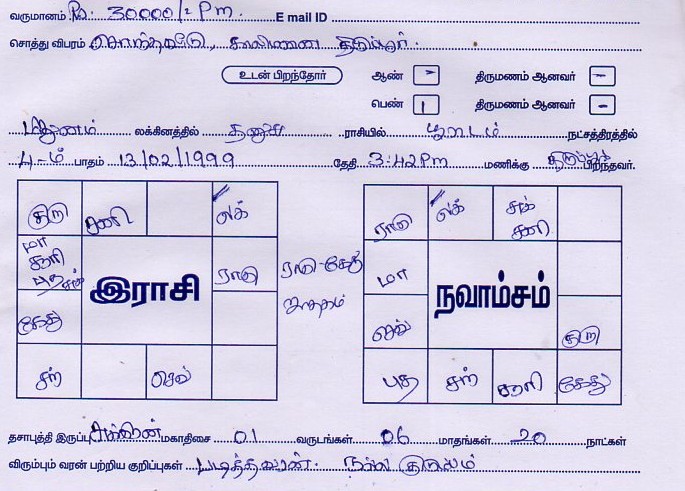 வருமானம் Rs. 30000/= P m. E mail ID
சொத்து விபரம் சொந்தவீடு, திருப்பூர்.
உடன் பிறந்தோர் ஆண் - திருமணம் ஆனவர் -
பெண் 1 திருமணம் ஆனவர் -
மிதுனம் லக்கினத்தில் தனுசு ராசியில் பூராடம் நட்சத்திரத்தில்
4-ம் பாதம் 13/02/1999 தேதி 3:42 Pm மணிக்கு பிறந்தவர்.
குரு சனி லக்
மா சூரி புத சுக்
ராகு
கேது
சந் செவ்
இராசி
ராகு-கேது
ராகு லக் சுக் சனி
மா
செவ் குரு
புத சந் சூரி கேது
நவாம்சம்
தசாபுத்தி இருப்பு சுக்கிரன் மகாதிசை 01 வருடங்கள் 06 மாதங்கள் 20 நாட்கள்
விரும்பும் வரன் பற்றிய குறிப்புகள் படித்தவரன். நல்ல குடும்பம்